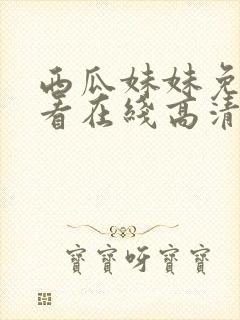 西瓜妹妹免
看在綫高清
寶寶呀寶寶